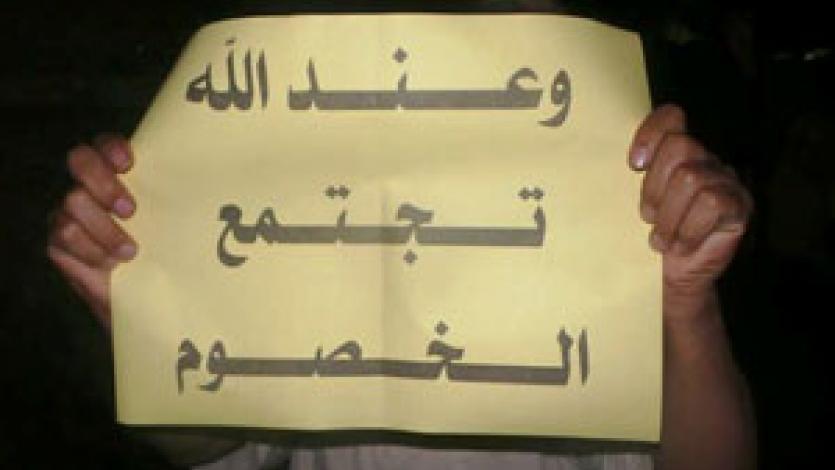 وعند الله
تجتمع
الخصوم